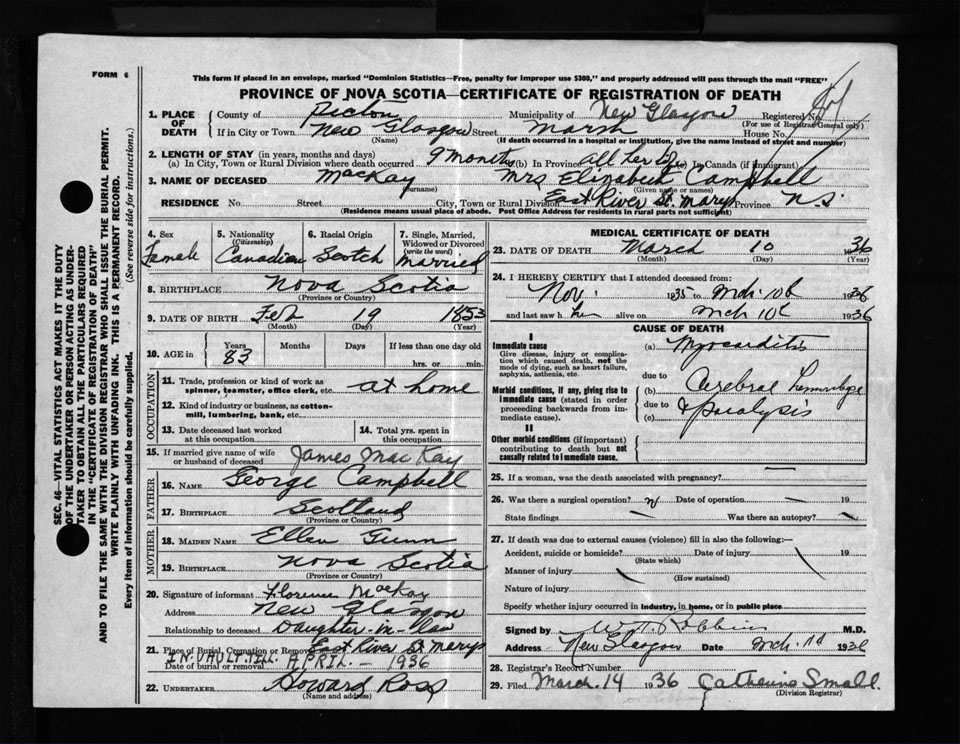 FORM 6
This form if placed in an envelope, marked "Dominion Statistics—Free, penalty for improper use $300," and properly addressed will pass through the mail "FREE"
PROVINCE OF NOVA SCOTIA—CERTIFICATE OF REGISTRATION OF DEATH
SEC. 46—VITAL STATISTICS ACT MAKES IT THE DUTY
OF THE UNDERTAKER OR PERSON ACTING AS UNDER-
TAKER TO OBTAIN ALL THE PARTICULARS REQUIRED
IN THE "CERTIFICATE OF REGISTRATION OF DEATH"
AND TO FILE THE SAME WITH THE DIVISION REGISTRAR WHO SHALL ISSUE THE BURIAL PERMIT.
WRITE PLAINLY WITH UNFADING INK. THIS IS A PERMANENT RECORD.
Every item of information should be carefully supplied. (See reverse side for instructions.)
1. PLACE OF DEATH County of Pictou Municipality of New Glasgow Registered No.
(For use of Registrar General only)
If in City or Town New Glasgow Street Marsh House No.
(Name) (If death occurred in a hospital or institution, give the name instead of street and number)
2. LENGTH OF STAY (in years, months and days)
(a) In City, Town or Rural Division where death occurred 9 months (b) In Province all her life (c) In Canada (if immigrant)
3. NAME OF DECEASED MacKay Mrs Elizabeth Campbell
(Surname) (Given name or names)
RESIDENCE No. Street City, Town or Rural Division East River St. Marys Province N.S.
(Residence means usual place of abode. Post Office Address for residents in rural parts not sufficient)
4. Sex Female
5. Nationality (Citizenship) Canadian
6. Racial Origin Scotch
7. Single, Married, Widowed or Divorced (write the word) Married
8. BIRTHPLACE Nova Scotia
(Province or Country)
9. DATE OF BIRTH Feb 19 1853
(Month) (Day) (Year)
10. AGE in Years 83 Months Days If less than one day old
hrs. or min.
OCCUPATION
11. Trade, profession or kind of work as spinner, teamster, office clerk, etc. at home
12. Kind of industry or business, as cotton-mill, lumbering, bank, etc.
13. Date deceased last worked at this occupation
14. Total yrs. spent in this occupation
15. If married give name of wife or husband of deceased James MacKay
FATHER
16. NAME George Campbell
17. BIRTHPLACE Scotland
(Province or Country)
MOTHER
18. MAIDEN NAME Ellen Gunn
19. BIRTHPLACE Nova Scotia
(Province or Country)
20. Signature of informant Florence MacKay
Address New Glasgow
Relationship to deceased Daughter-in-law
21. Place of Burial, Cremation or Removal East River St Marys
Date of burial or removal IN VAULT TILL APRIL - 1936
22. UNDERTAKER Howard Ross
(Name and address)
MEDICAL CERTIFICATE OF DEATH
23. DATE OF DEATH March 10 1936
(Month) (Day) (Year)
24. I HEREBY CERTIFY that I attended deceased from:
Nov. 1935 to Mch. 10th 1936
and last saw h er alive on Mch 10th 1936
CAUSE OF DEATH
I
Immediate cause
Give disease, injury or complication which caused death, not the mode of dying, such as heart failure, asphyxia, asthenia, etc.
(a) Myocarditis
due to
Morbid conditions, if any, giving rise to immediate cause (stated in order proceeding backwards from immediate cause).
(b) Cerebral hemorrhage
due to
(c) & paralysis
II
Other morbid conditions (if important) contributing to death but not causally related to immediate cause.
25. If a woman, was the death associated with pregnancy?
26. Was there a surgical operation? Date of operation 19
State findings Was there an autopsy?
27. If death was due to external causes (violence) fill in also the following:—
Accident, suicide or homicide? Date of injury 19
(State which)
Manner of injury
(How sustained)
Nature of injury
Specify whether injury occurred in industry, in home, or in public place
Signed by M.D.
Address New Glasgow Date Mch. 1936
28. Registrar's Record Number
29. Filed March. 14 1936 Catherine Small.
(Division Registrar)